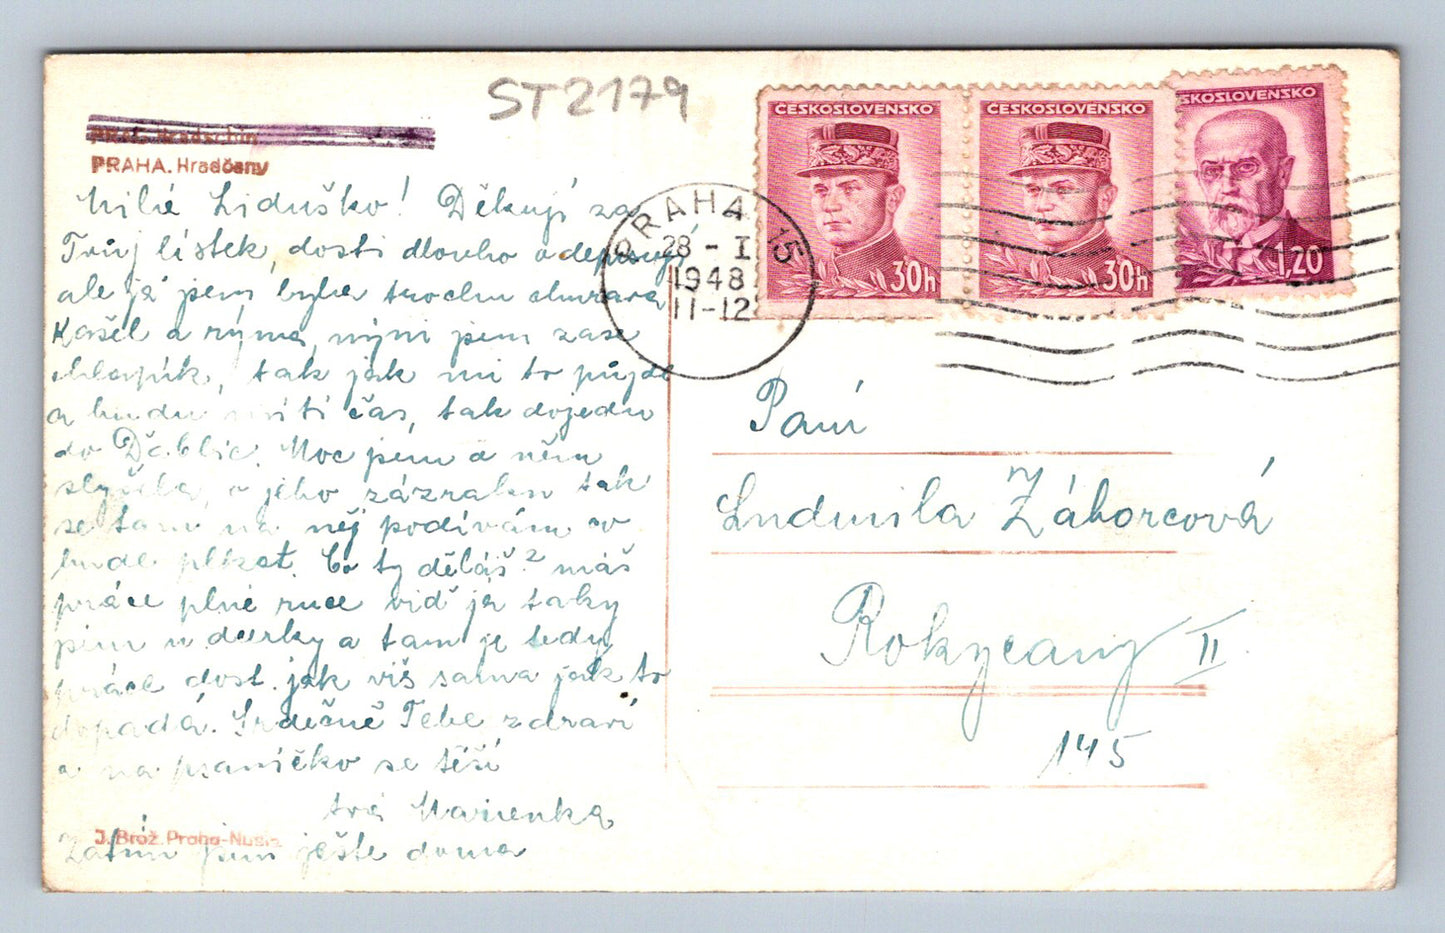 ST2179
PRAHA. Hradčany
Milé Liduško! Děkuji za
Tvůj lístek, dosti dlouho
ale já jsem byla trochu churava
Kašel a rýma, nyní jsem zase
chlapík, tak jak mi to půjde
a budu míti čas, tak dojedu
do Ďáblic. Moc jsem o něm
slyšela, o jeho zázraku tak
se tam na něj podívám co
bude plkat. Co ty děláš? máš
práce plné ruce viď já taky
jsem u dcerky a tam je tedy
práce dost jak víš sama jak to
dopadá. Srdečně Tebe zdraví
a na psaníčko se těší
tvá Mařenka
Zatím jsem ješte doma
J. Brož. Praha-Nusle
PRAHA 15
28 - I
1948
11-12
ČESKOSLOVENSKO
30h
ČESKOSLOVENSKO
30h
SKOSLOVENSKO
1,20
Paní
Ludmila Záhorcová
Rokycany II
145